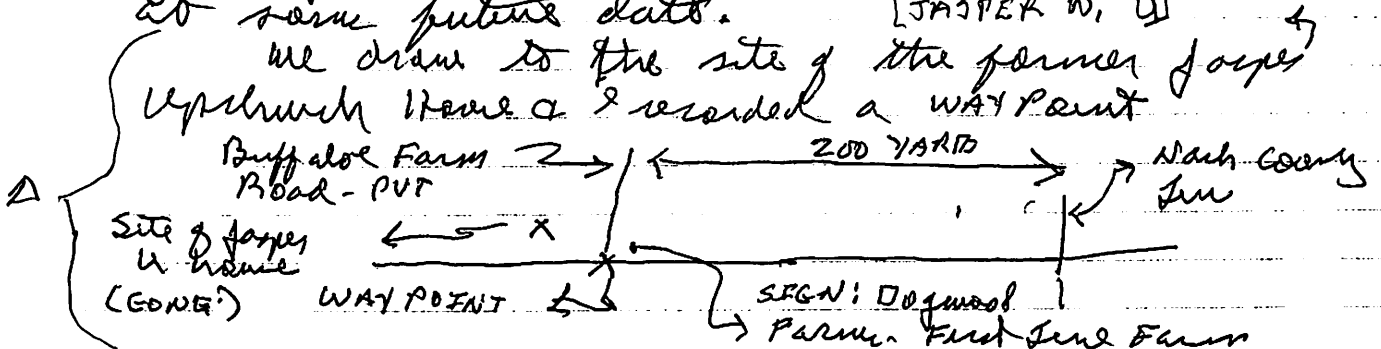 at some future date. [JASPER W. U]
We drove to the site of the former Jasper
Upchurch Home & I recorded a WAYPOINT
Buffaloe Farm 200 YARDS Nash County
Road - PVT Line
Site of Jasper X
U home
(GONE) WAYPOINT SIGN: Dogwood
Farm - First Farm